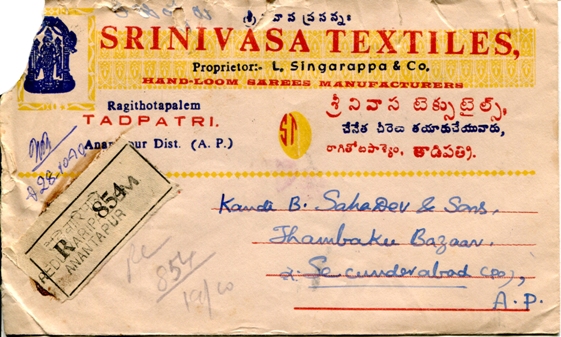 శ్రీనివాస ప్రసన్నః
SRINIVASA TEXTILES,
Proprietor:- L. Singarappa & Co.
HAND-LOOM SAREES MANUFACTURERS
Ragithotapalem
TADPATRI.
Anantapur Dist. (A. P.)
ST
శ్రీనివాస టెక్సుటైల్స్,
చేనేత చీరెలు తయారుచేయువారు,
రాగితోటపాళ్యెం, తాడిపత్రి.
R 854
ANANTAPUR
Kandi B. SahaDev & Sons,
Thambaku Bazaar,
Secunderabad (PO),
A.P.
854